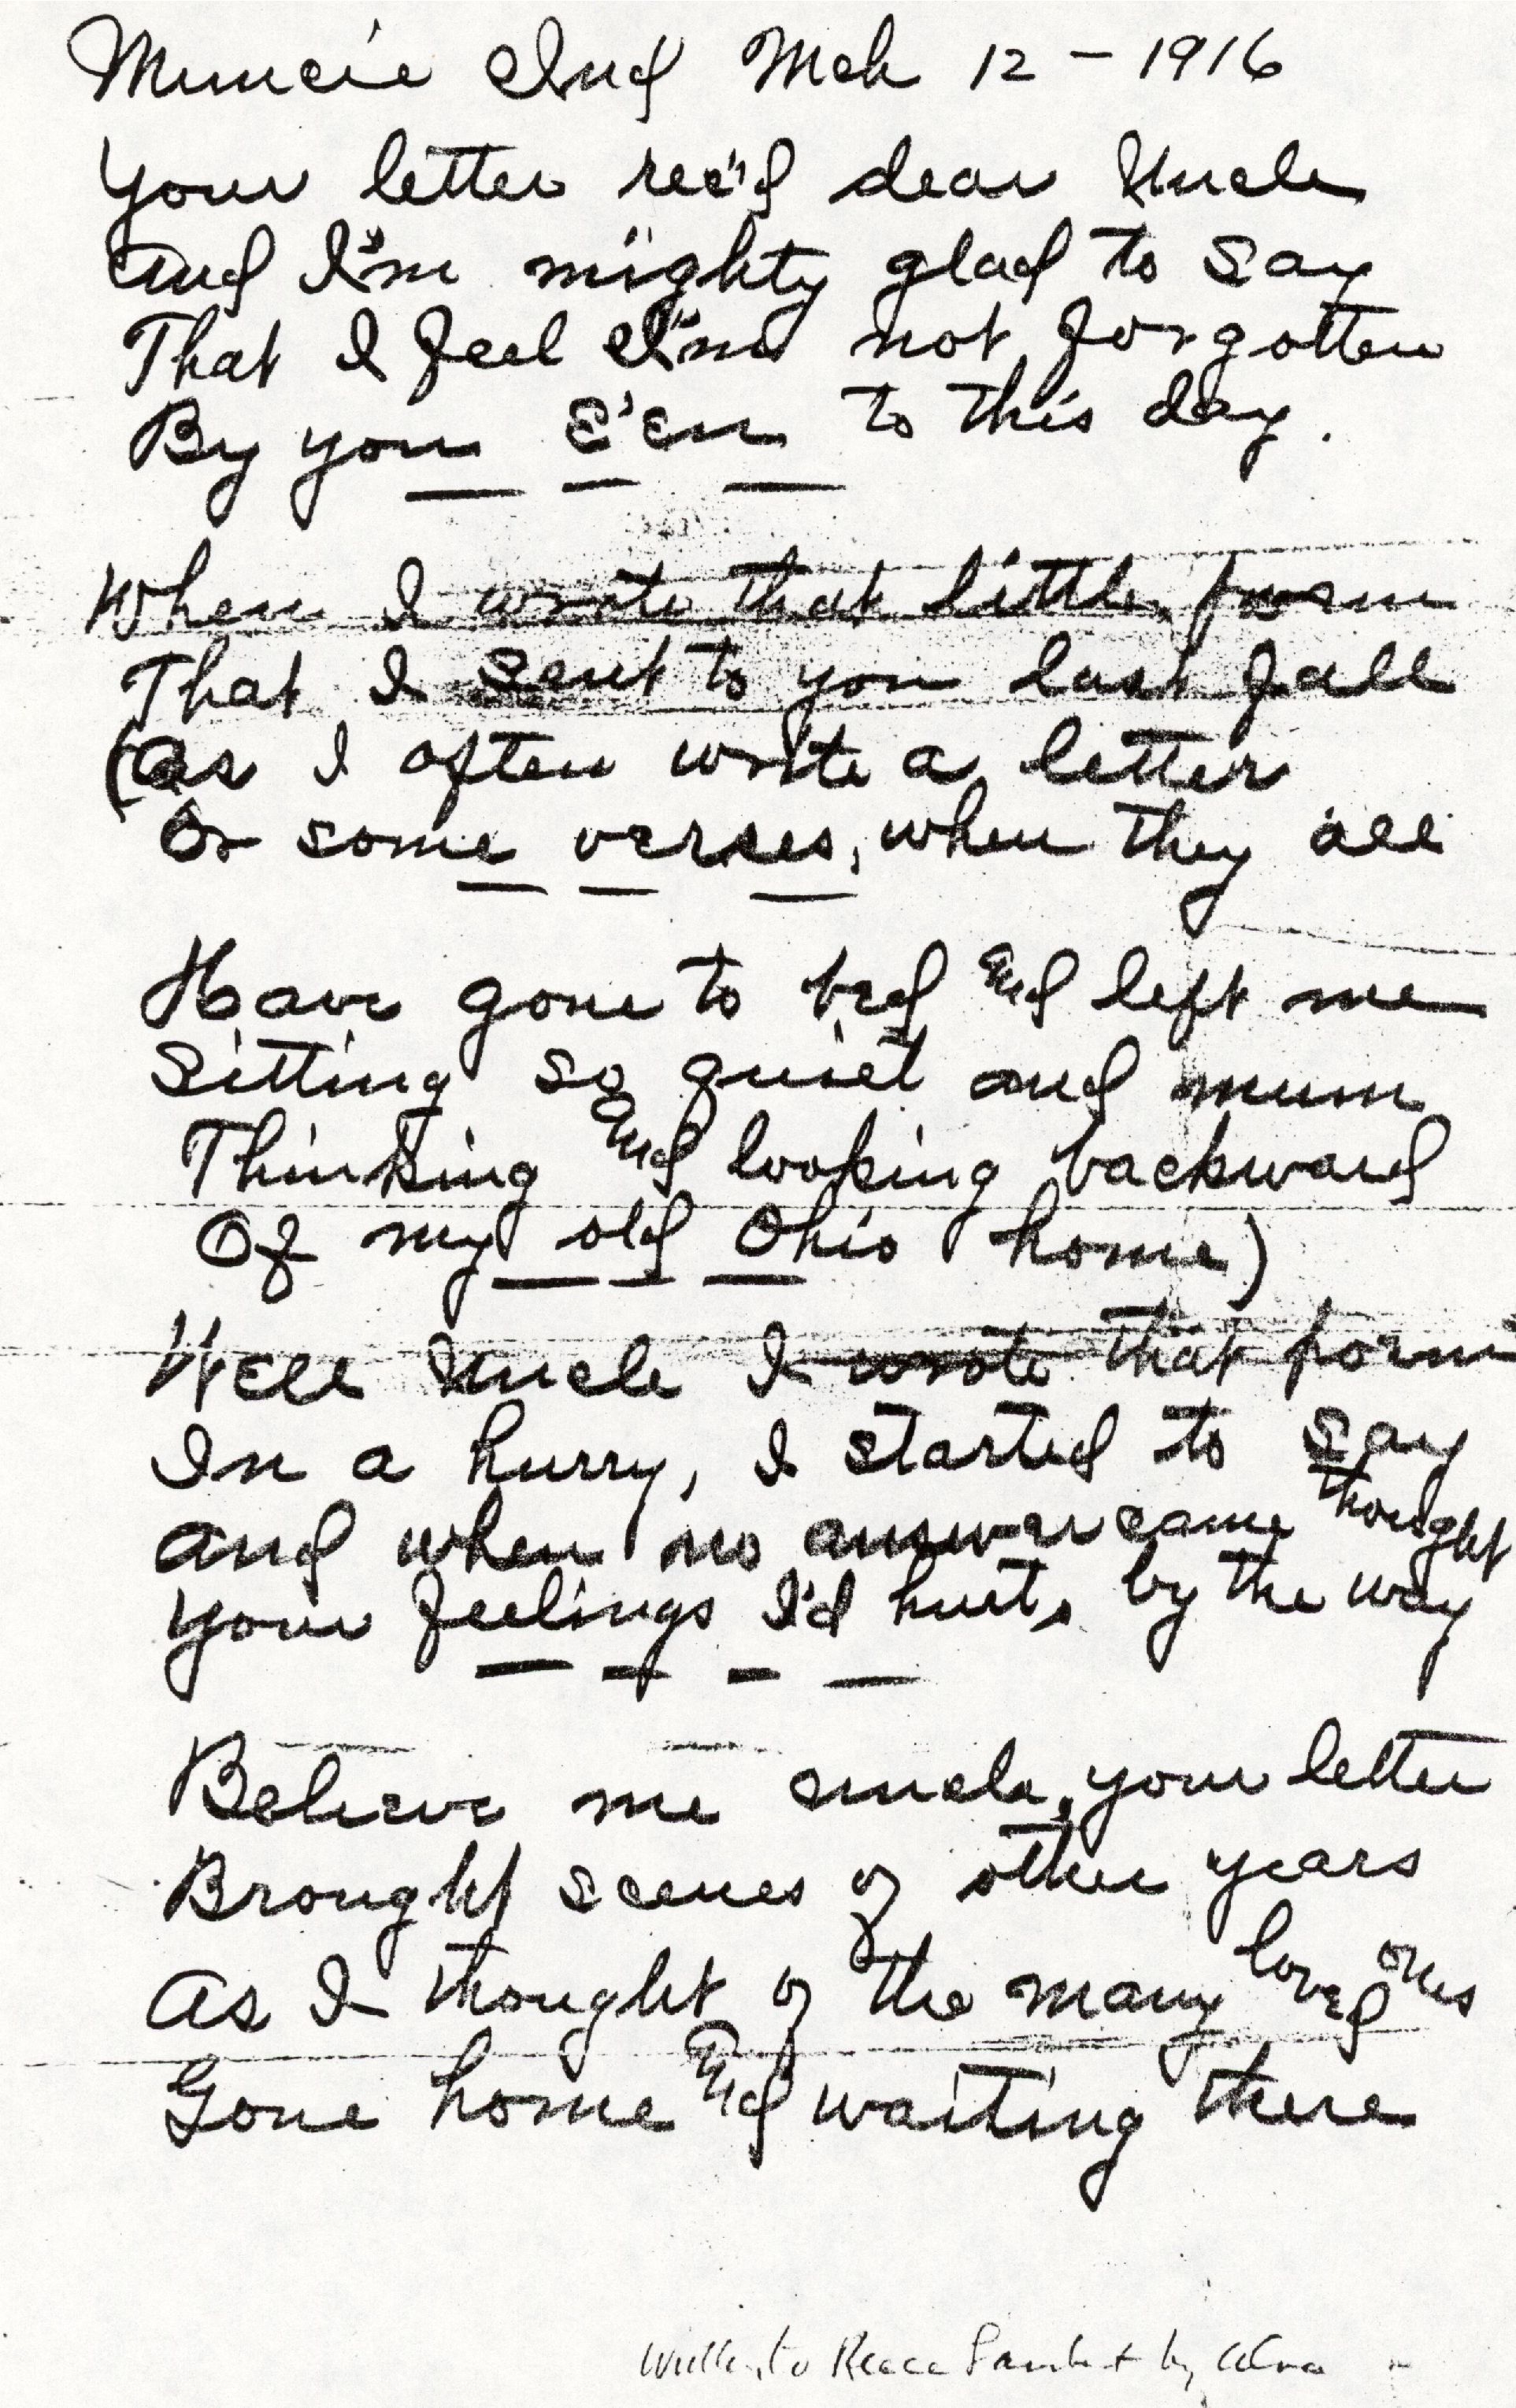 Muncie Ind Mch 12 - 1916
Your letter rec'd dear Uncle
And I'm mighty glad to say
That I feel I'm not forgotten
By you E'en to this day.
When I wrote that little poem
That I sent to you last fall
(As I often write a letter
Or some verses, when they all
Have gone to bed and left me
Sitting so quiet and mum
Thinking and looking backward
Of my old Ohio home)
Well Uncle I wrote that poem
In a hurry, I started to say
And when no answer came thought
Your feelings I'd hurt, by the way
Believe me uncle, your letter
Brought scenes of other years
As I thought of the many loved ones
Gone home and waiting there
to by